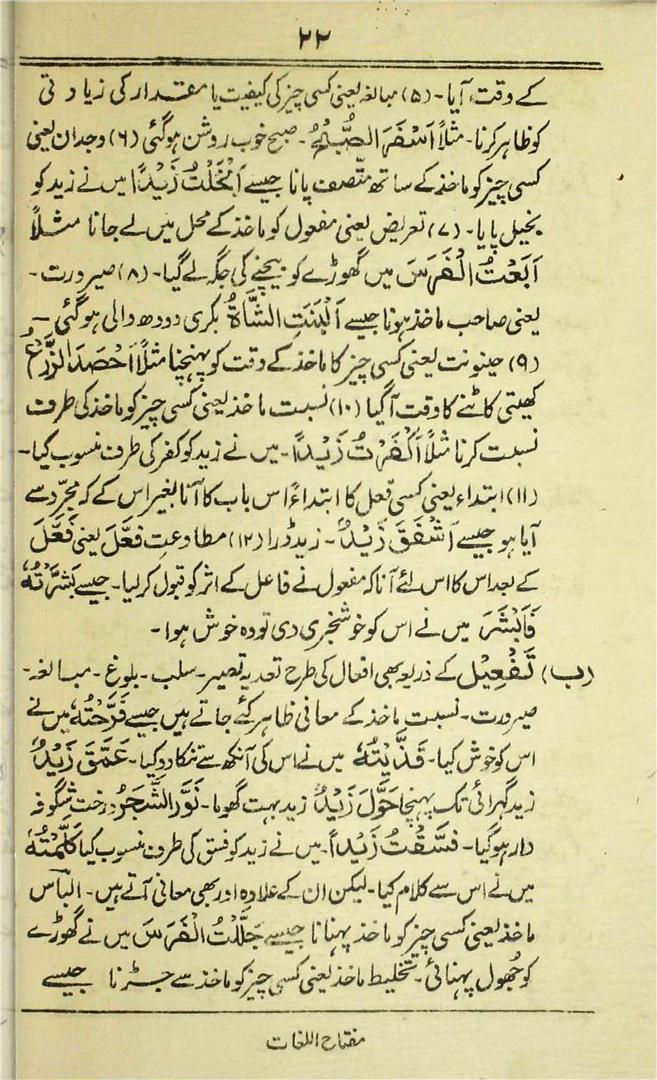 ۲۲
کے وقت، آیا۔ (۵) مبالغہ یعنی کسی چیز کی کیفیت یا مقدار کی زیادتی
کو ظاہر کرنا۔ مثلاً اَسْفَرَ الصُّبْحُ۔ صبح خوب روشن ہوگئی (۶) وجدان یعنی
کسی چیز کو ماخذ کے ساتھ متّصف پانا جیسے اَبْخَلْتُ زَیْدًا میں نے زید کو
بخیل پایا۔ (۷) تعریض یعنی مفعول کو ماخذ کے محل میں لے جانا مثلاً
اَبَعْتُ الْفَرَسَ میں گھوڑے کو بیچنے کی جگہ لے گیا۔ (۸) صیرورت۔
یعنی صاحب ماخذ ہونا جیسے اَلْبَنَتِ الشَّاۃُ بکری دودھ والی ہوگئی۔
(۹) حینونت یعنی کسی چیز کا ماخذ کے وقت کو پہنچنا مثلاً اَحْصَدَ الزَّرْعُ
کھیتی کاٹنے کا وقت آگیا (۱۰) نسبت ماخذ یعنی کسی چیز کو ماخذ کی طرف
نسبت کرنا مثلاً اَکْفَرْتُ زَیْدًا۔ میں نے زید کو کفر کی طرف منسوب کیا۔
(۱۱) ابتداء یعنی کسی فعل کا ابتداءً اس باب کا آنا بغیر اس کے کہ مجرّد سے
آیا ہو جیسے اَشْفَقَ زَیْدٌ۔ زید ڈرا (۱۲) مطاوعتِ فَعَّلَ یعنی فَعَّلَ
کے بعد اس کا اس لئے آنا کہ مفعول نے فاعل کے اثر کو قبول کرلیا۔ جیسے بَشَّرْتُہٗ
فَاَبْشَرَ میں نے اس کو خوشخبری دی تو وہ خوش ہوا۔
(ب) تَفْعِیْل کے ذریعہ بھی افعال کی طرح تعدیہ تصییر۔ سلب۔ بلوغ۔ مبالغہ۔
صیرورت۔ نسبت ماخذ کے معانی ظاہر کئے جاتے ہیں جیسے فَرَّحْتُہٗ میں نے
اس کو خوش کیا۔ قَذَّیْتُہٗ میں نے اس کی آنکھ سے تنکا دور کیا۔ عَمَّقَ زَیْدٌ
زید گہرائی تک پہنچا حَوَّلَ زَیْدٌ زید بہت گھوما۔ نَوَّرَ الشَّجَرُ درخت شگوفہ
دار ہوگیا۔ فَسَّقْتُ زَیْدًا۔ میں نے زید کو فسق کی طرف منسوب کیا کَلَّمْتُہٗ
میں نے اس سے کلام کیا۔ لیکن ان کے علاوہ اور بھی معانی آتے ہیں۔ الباس
ماخذ یعنی کسی چیز کو ماخذ پہنانا جیسے جَلَّلْتُ الْفَرَسَ میں نے گھوڑے
کو جُھول پہنائی۔ تخلیط ماخذ یعنی کسی چیز کو ماخذ سے جڑنا جیسے
مفتاح اللغات